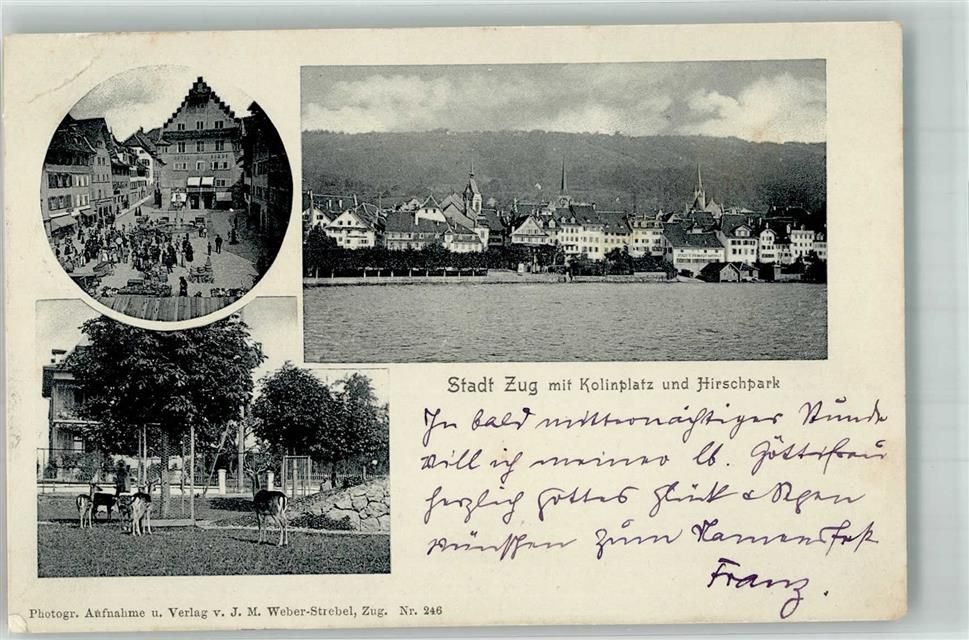 Stadt Zug mit Kolinplatz und Hirschpark
In bald mitternächtiger Stunde
will ich meiner lb. Göttifrau
herzlich Gottes Glück & Segen
wünschen zum Namensfest
Franz.
Photogr. Aufnahme u. Verlag v. J. M. Weber-Strebel, Zug. Nr. 246